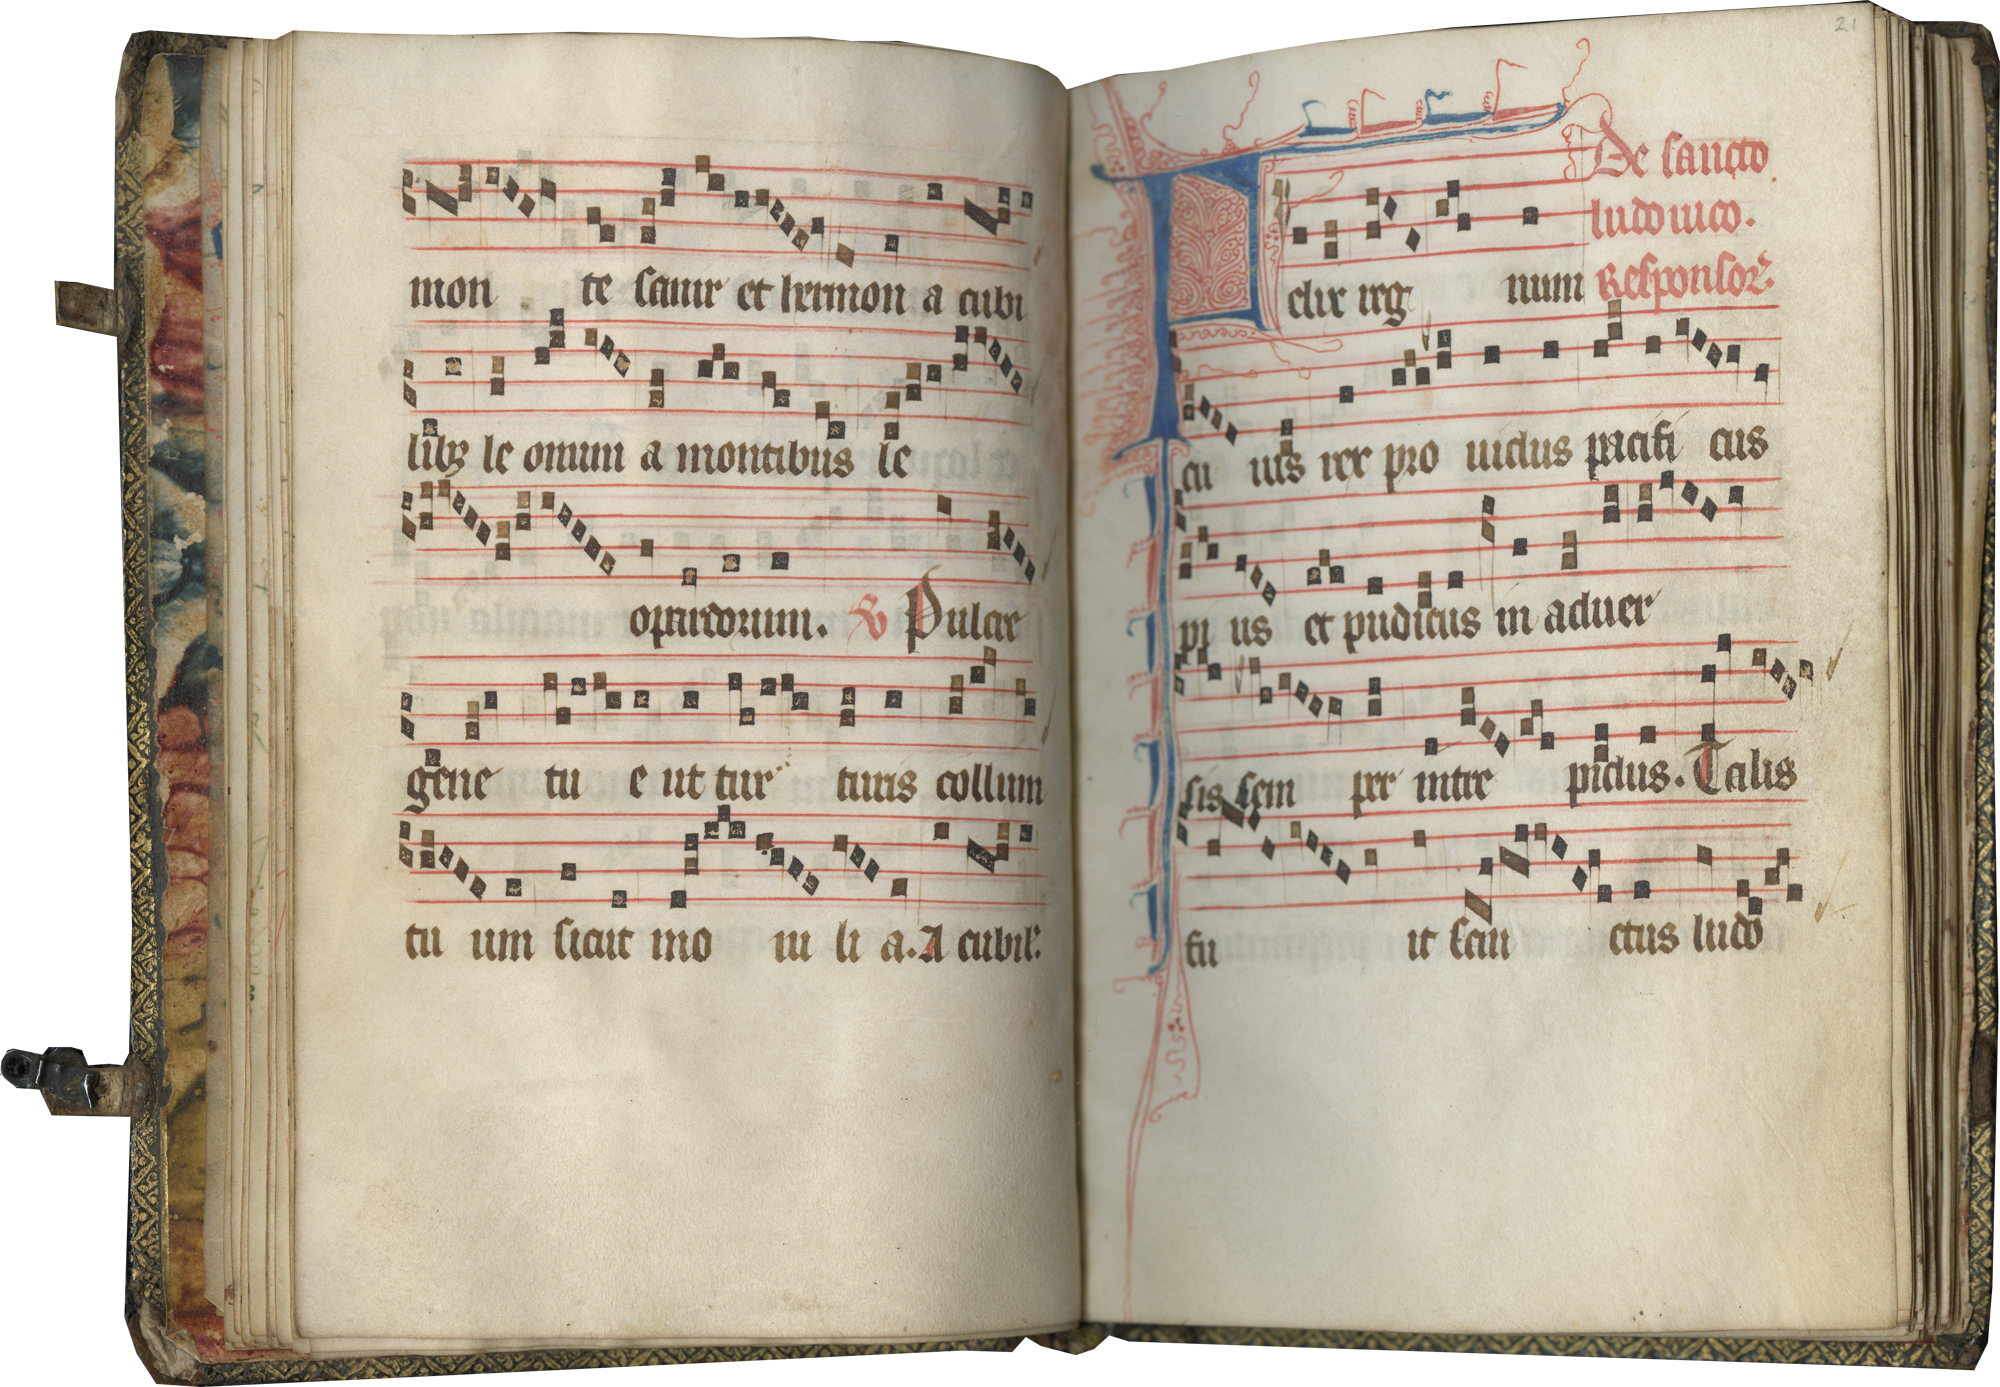 mon te sanir et hermon a cubi
libꝫ le onum a montibus le
opardorum. ℣ Pulcre
gene tu e ut tur turis collum
tu um sicut mo ni li a. A cubilꝰ.
21
De sancto
ludouico.
Responsor᷑.
Felix reg num
cu ius rex pro uidus pacifi cus
pi us et pudicus in aduer
sis sem per intre pidus. Talis
fu it san ctus ludo